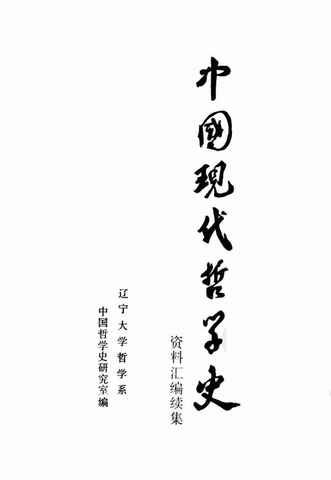 中國现代哲学史
资料汇编续集
辽宁大学哲学系
中国哲学史研究室编